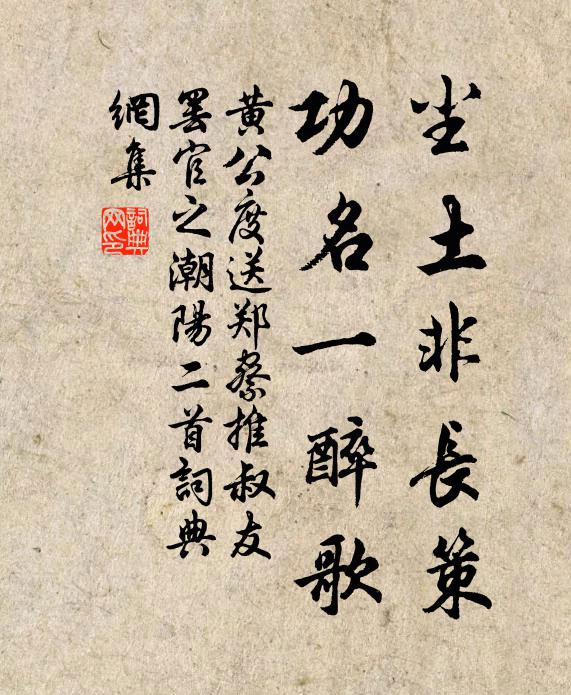 尘土非長策
功名一醉歌
黃公度送郑察推叔友
罢官之潮陽二首詞典
網集
詞典网印